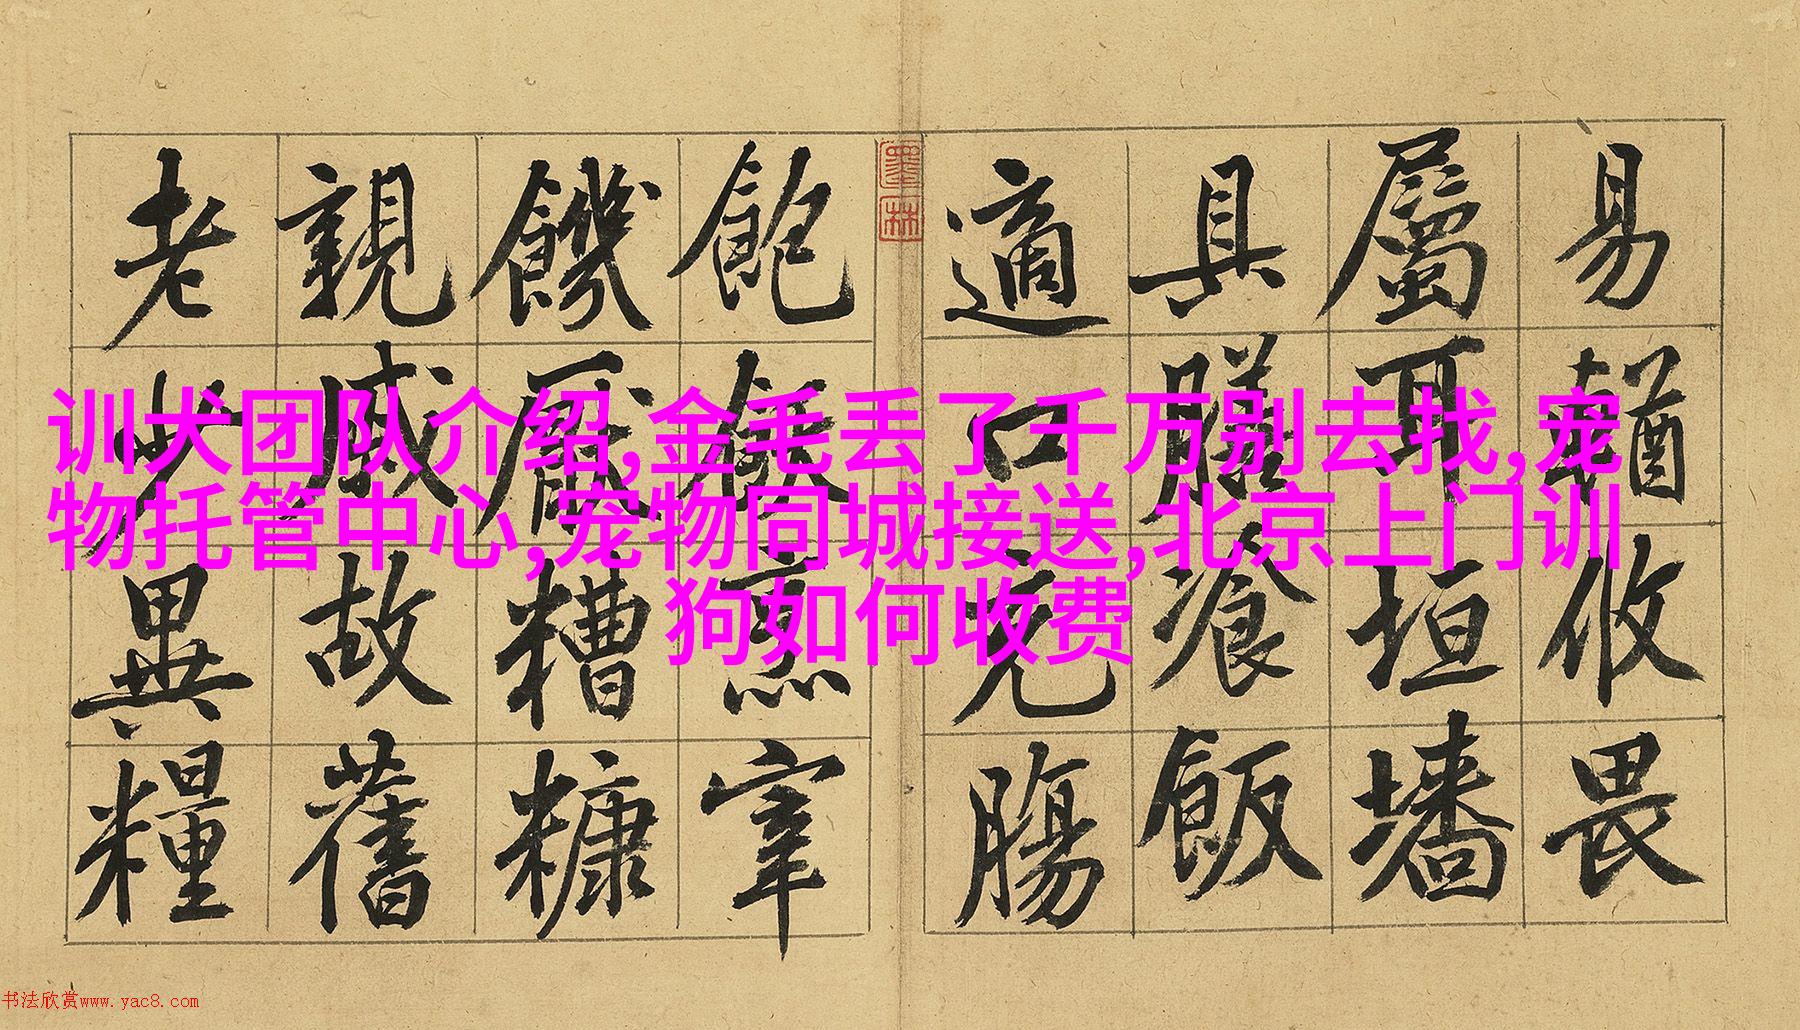 易輶攸畏
屬耳垣墻
具膳湌飯
適口充腸
飽飫烹宰
饑厭糟糠
親戚故舊
老少異糧
墨林
训犬团队介绍,金毛丢了千万别去找,宠
物托管中心,宠物同城接送,北京上门训
狗如何收费
书法欣赏www.yac8.com